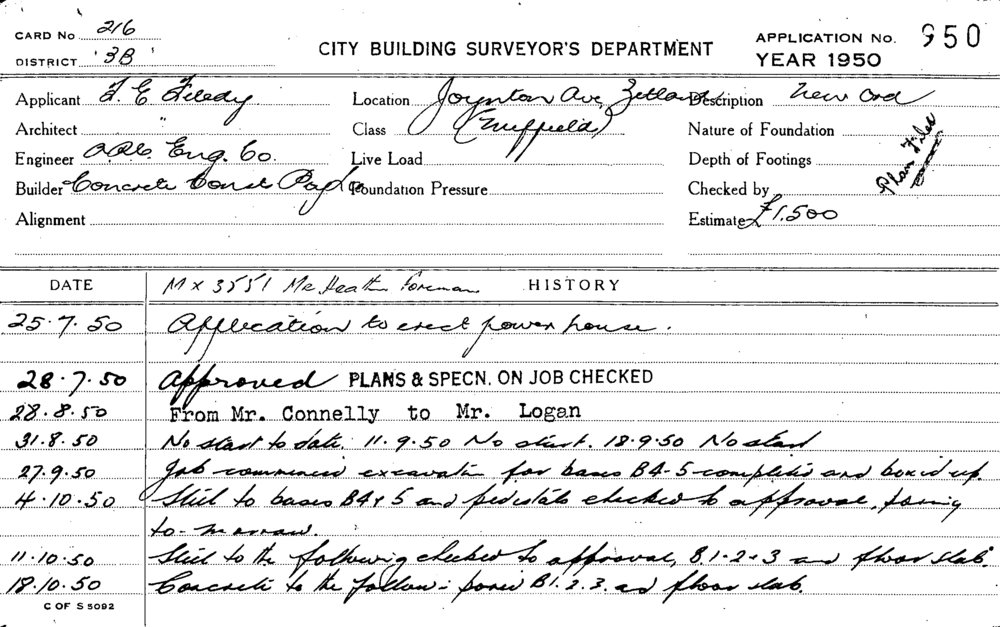 CARD No 216
DISTRICT 3B
CITY BUILDING SURVEYOR'S DEPARTMENT
APPLICATION No. 950
YEAR 1950
Applicant F. E. Location Joynton Ave, Zetland Description New Ord
Architect Class (Nuffield) Nature of Foundation
Engineer Eng. Co. Live Load Depth of Footings
Plan Filed
Builder Concrete Const Foundation Pressure Checked by
Alignment Estimate £1,500
DATE Mx 3551 Mr. Heath Foreman HISTORY
25.7.50 Application to erect power house.
28.7.50 Approved PLANS & SPECN. ON JOB CHECKED
28.8.50 From Mr. Connelly to Mr. Logan
31.8.50 No start to date. 11.9.50 No start. 18.9.50 No start
27.9.50 Job commenced excavation for bases B4-5 completed and boxed up.
4.10.50 Steel to bases B4 & 5 and pedestals checked to approval, pouring
to-morrow.
11.10.50 Steel to the following checked to approval, B.1-2-3 and floor slab.
18.10.50 Concrete to the follow: poured B1.2.3. and floor slab.
C OF S 5092